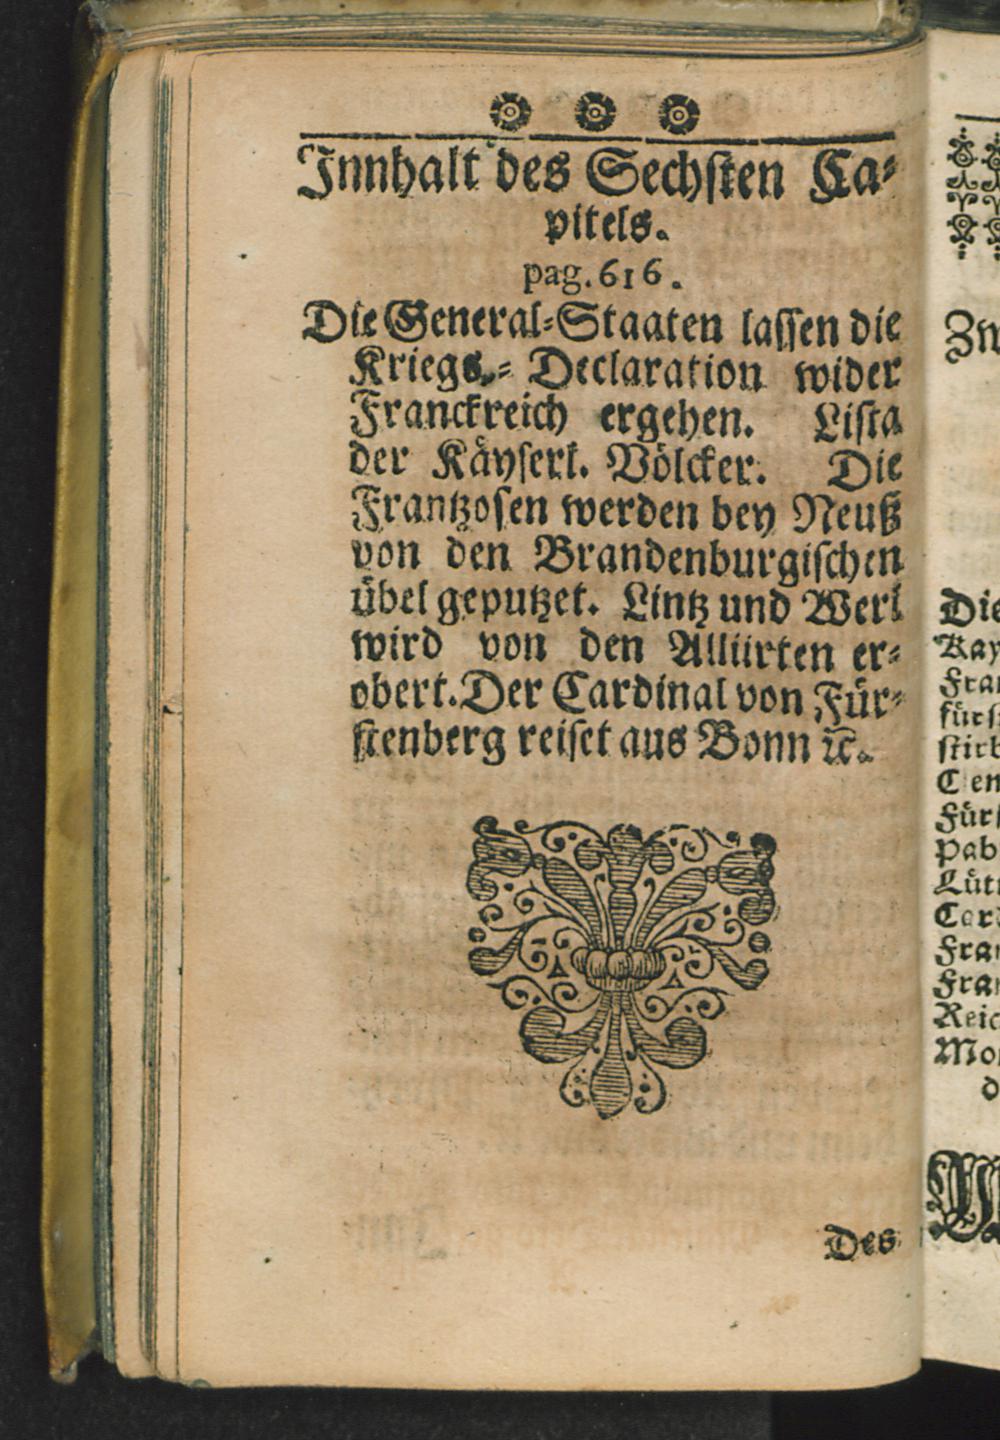 Innhalt des Sechsten Ca-
pitels.
pag. 616.
Die General-Staaten lassen die
Kriegs-Declaration wider
Franckreich ergehen. Lista
der Käyserl. Völcker. Die
Frantzosen werden bey Neuß
von den Brandenburgischen
übel geputzet. Lintz und Werl
wird von den Alliirten er-
obert. Der Cardinal von Für-
stenberg reiset aus Bonn ꝛc.
Des
Zw
Die
Kay
Fran
fürst
stirb
Cen
Fürs
Pab
Lütt
Card
Fran
Fran
Reic
Mon
d